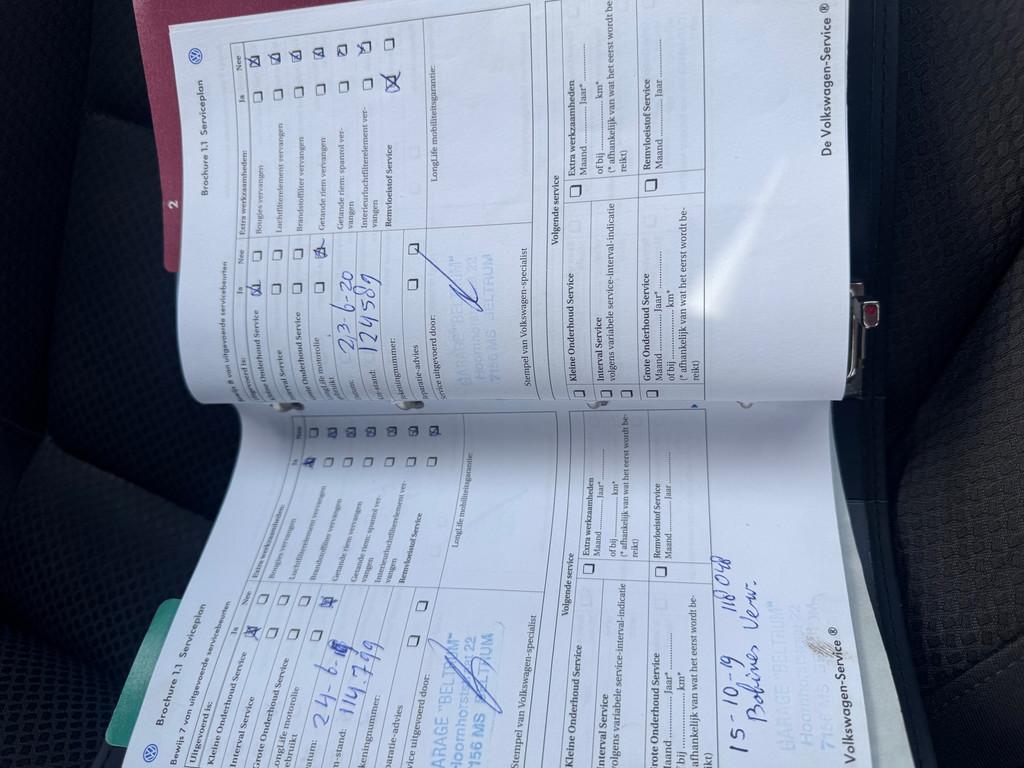 Brochure 1.1 Serviceplan
Bewijs 7 van uitgevoerde servicebeurten
Uitgevoerd is: Ja Nee
Kleine Onderhoud Service
Interval Service
Grote Onderhoud Service
LongLife motorolie
24-6-
114.799
Extra werkzaamheden: Ja Nee
Bougies vervangen
Luchtfilterelement vervangen
Brandstoffilter vervangen
Getande riem vervangen
Getande riem: spanrol ver-
vangen
Interieurluchtfilterelement ver-
vangen
Remvloeistof Service
LongLife mobiliteitsgarantie:
GARAGE "BELTRUM"
Hoornhorst 22
7156 MS BELTRUM
Stempel van Volkswagen-specialist
Volgende service
Kleine Onderhoud Service
Interval Service
volgens variabele service-interval-indicatie
Grote Onderhoud Service
Maand ........ Jaar*
of bij ........ km*
(* afhankelijk van wat het eerst wordt be-
reikt)
Extra werkzaamheden
Maand ........ Jaar*
of bij ........ km*
(* afhankelijk van wat het eerst wordt be-
reikt)
Remvloeistof Service
Maand ........ Jaar
15-10-19 118048
Bobines verv.
GARAGE "BELTRUM"
Volkswagen-Service ®
Brochure 1.1 Serviceplan
2
8 van uitgevoerde servicebeurten
Ja Nee
Onderhoud Service
Service
Onderhoud Service
LongLife motorolie
23-6-20
124589
Extra werkzaamheden: Ja Nee
Bougies vervangen
Luchtfilterelement vervangen
Brandstoffilter vervangen
Getande riem vervangen
Getande riem: spanrol ver-
vangen
Interieurluchtfilterelement ver-
vangen
Remvloeistof Service
LongLife mobiliteitsgarantie:
GARAGE "BELTRUM"
Hoornhorst 22
7156 MS BELTRUM
Stempel van Volkswagen-specialist
Volgende service
Kleine Onderhoud Service
Interval Service
volgens variabele service-interval-indicatie
Grote Onderhoud Service
Maand ........ Jaar*
of bij ........ km*
(* afhankelijk van wat het eerst wordt be-
reikt)
Extra werkzaamheden
Maand ........ Jaar*
of bij ........ km*
(* afhankelijk van wat het eerst wordt be-
reikt)
Remvloeistof Service
Maand ........ Jaar
De Volkswagen-Service ®